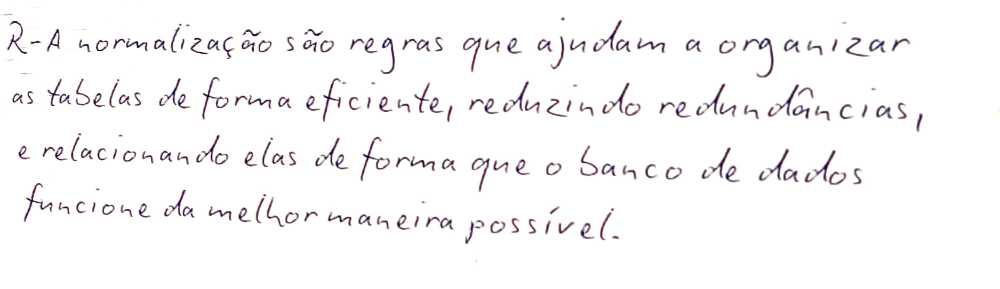 R-A normalização são regras que ajudam a organizar
as tabelas de forma eficiente, reduzindo redundâncias,
e relacionando elas de forma que o banco de dados
funcione da melhor maneira possível.